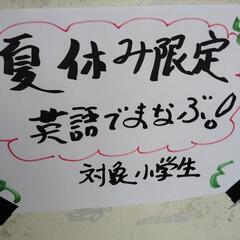 夏休み限定
英語でまなぶ!
対象小学生